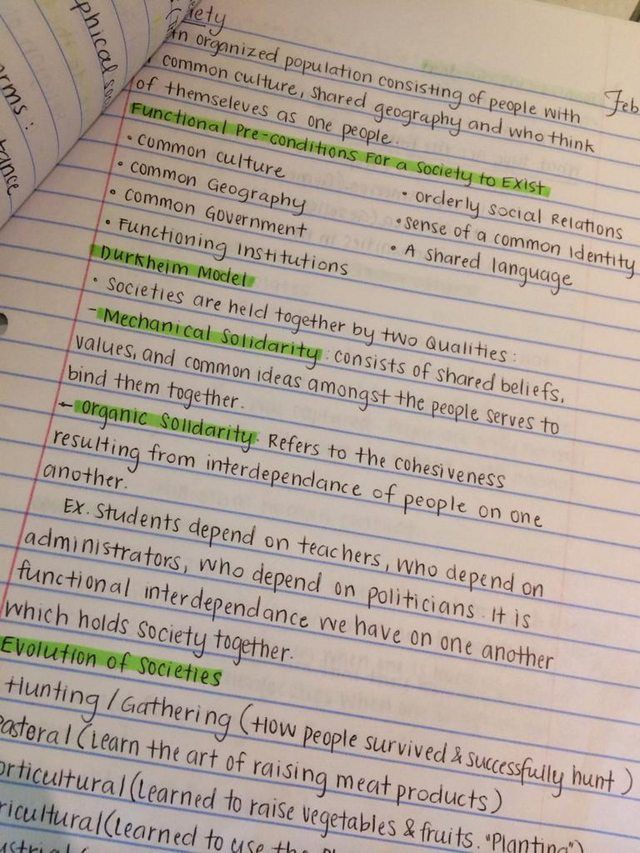 phical
erms:
tance
iety
Feb
an organized population consisting of people with
common culture, shared geography and who think
of themseleves as one people.
Functional Pre-conditions For a Society to Exist
• common culture
• common Geography
• common Government
• Functioning Institutions
• orderly social Relations
• sense of a common Identity
• A shared language
Durkheim Model
• Societies are held together by two Qualities:
- Mechanical Solidarity: consists of shared beliefs,
values, and common ideas amongst the people serves to
bind them together.
- Organic Solidarity: Refers to the cohesiveness
resulting from interdependance of people on one
another.
Ex. Students depend on teachers, who depend on
administrators, who depend on politicians. It is
functional interdependance we have on one another
which holds society together.
Evolution of Societies
Hunting/Gathering (How people survived & successfully hunt)
Pastoral (Learn the art of raising meat products)
orticultural (Learned to raise vegetables & fruits. "Planting")
ricultural (Learned to use the
ustrial